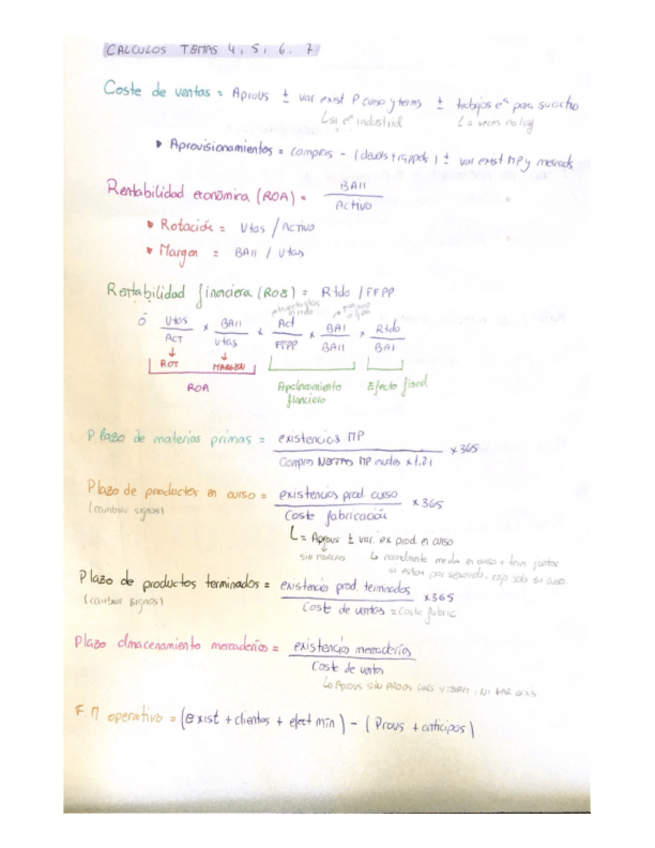 CALCULOS TEMAS 4, 5, 6. 7
Coste de ventas = Aprovs ± var exist P curso y term ± trabajos eª para su activo
↳ si eª industrial ↳ a veces no hay
▸ Aprovisionamientos = compras - (devols + rappels) ± var exist MP y mercads
Rentabilidad económica (ROA) = BAII / Activo
• Rotación = Vtas / Activo
• Margen = BAII / Vtas
Rentabilidad financiera (ROE) = Rtdo / FFPP
ó Vtas / ACT x BAII / Vtas x Act / FFPP x BAI / BAII x Rtdo / BAI
↓ ROT ↓ MARGEN
ROA Apalancamiento financiero Efecto fiscal
Plazo de materias primas = existencias MP / Compras Netas MP x 1.21 x 365
Plazo de productos en curso = existencias prod. curso / Coste fabricación x 365
(cambiar signos)
↳ = Aprovs ± var. ex prod. en curso
↳ normalmente en curso + term juntos
si estan por separado, cojo solo en curso
Plazo de productos terminados = existencias prod. terminados / Coste de ventas = Coste fabric x 365
(cambiar signos)
Plazo almacenamiento mercaderías = existencias mercaderías / Coste de ventas
↳ Aprovs SIN PRODS CURS Y TERM, NI VAR EXIS
F.M operativo = (exist + clientes + efect min) - (Provs + anticipos)